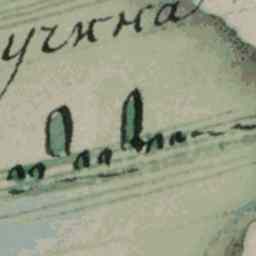 учина